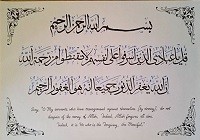 بسم الله الرحمن الرحيم
قل يا عبادي الذين أسرفوا على أنفسهم لا تقنطوا من رحمة الله
إن الله يغفر الذنوب جميعا إنه هو الغفور الرحيم
Say: "O My servants who have transgressed against themselves [by sinning], do not
despair of the mercy of Allah. Indeed, Allah forgives all sins.
Indeed, it is He who is the Forgiving, the Merciful."